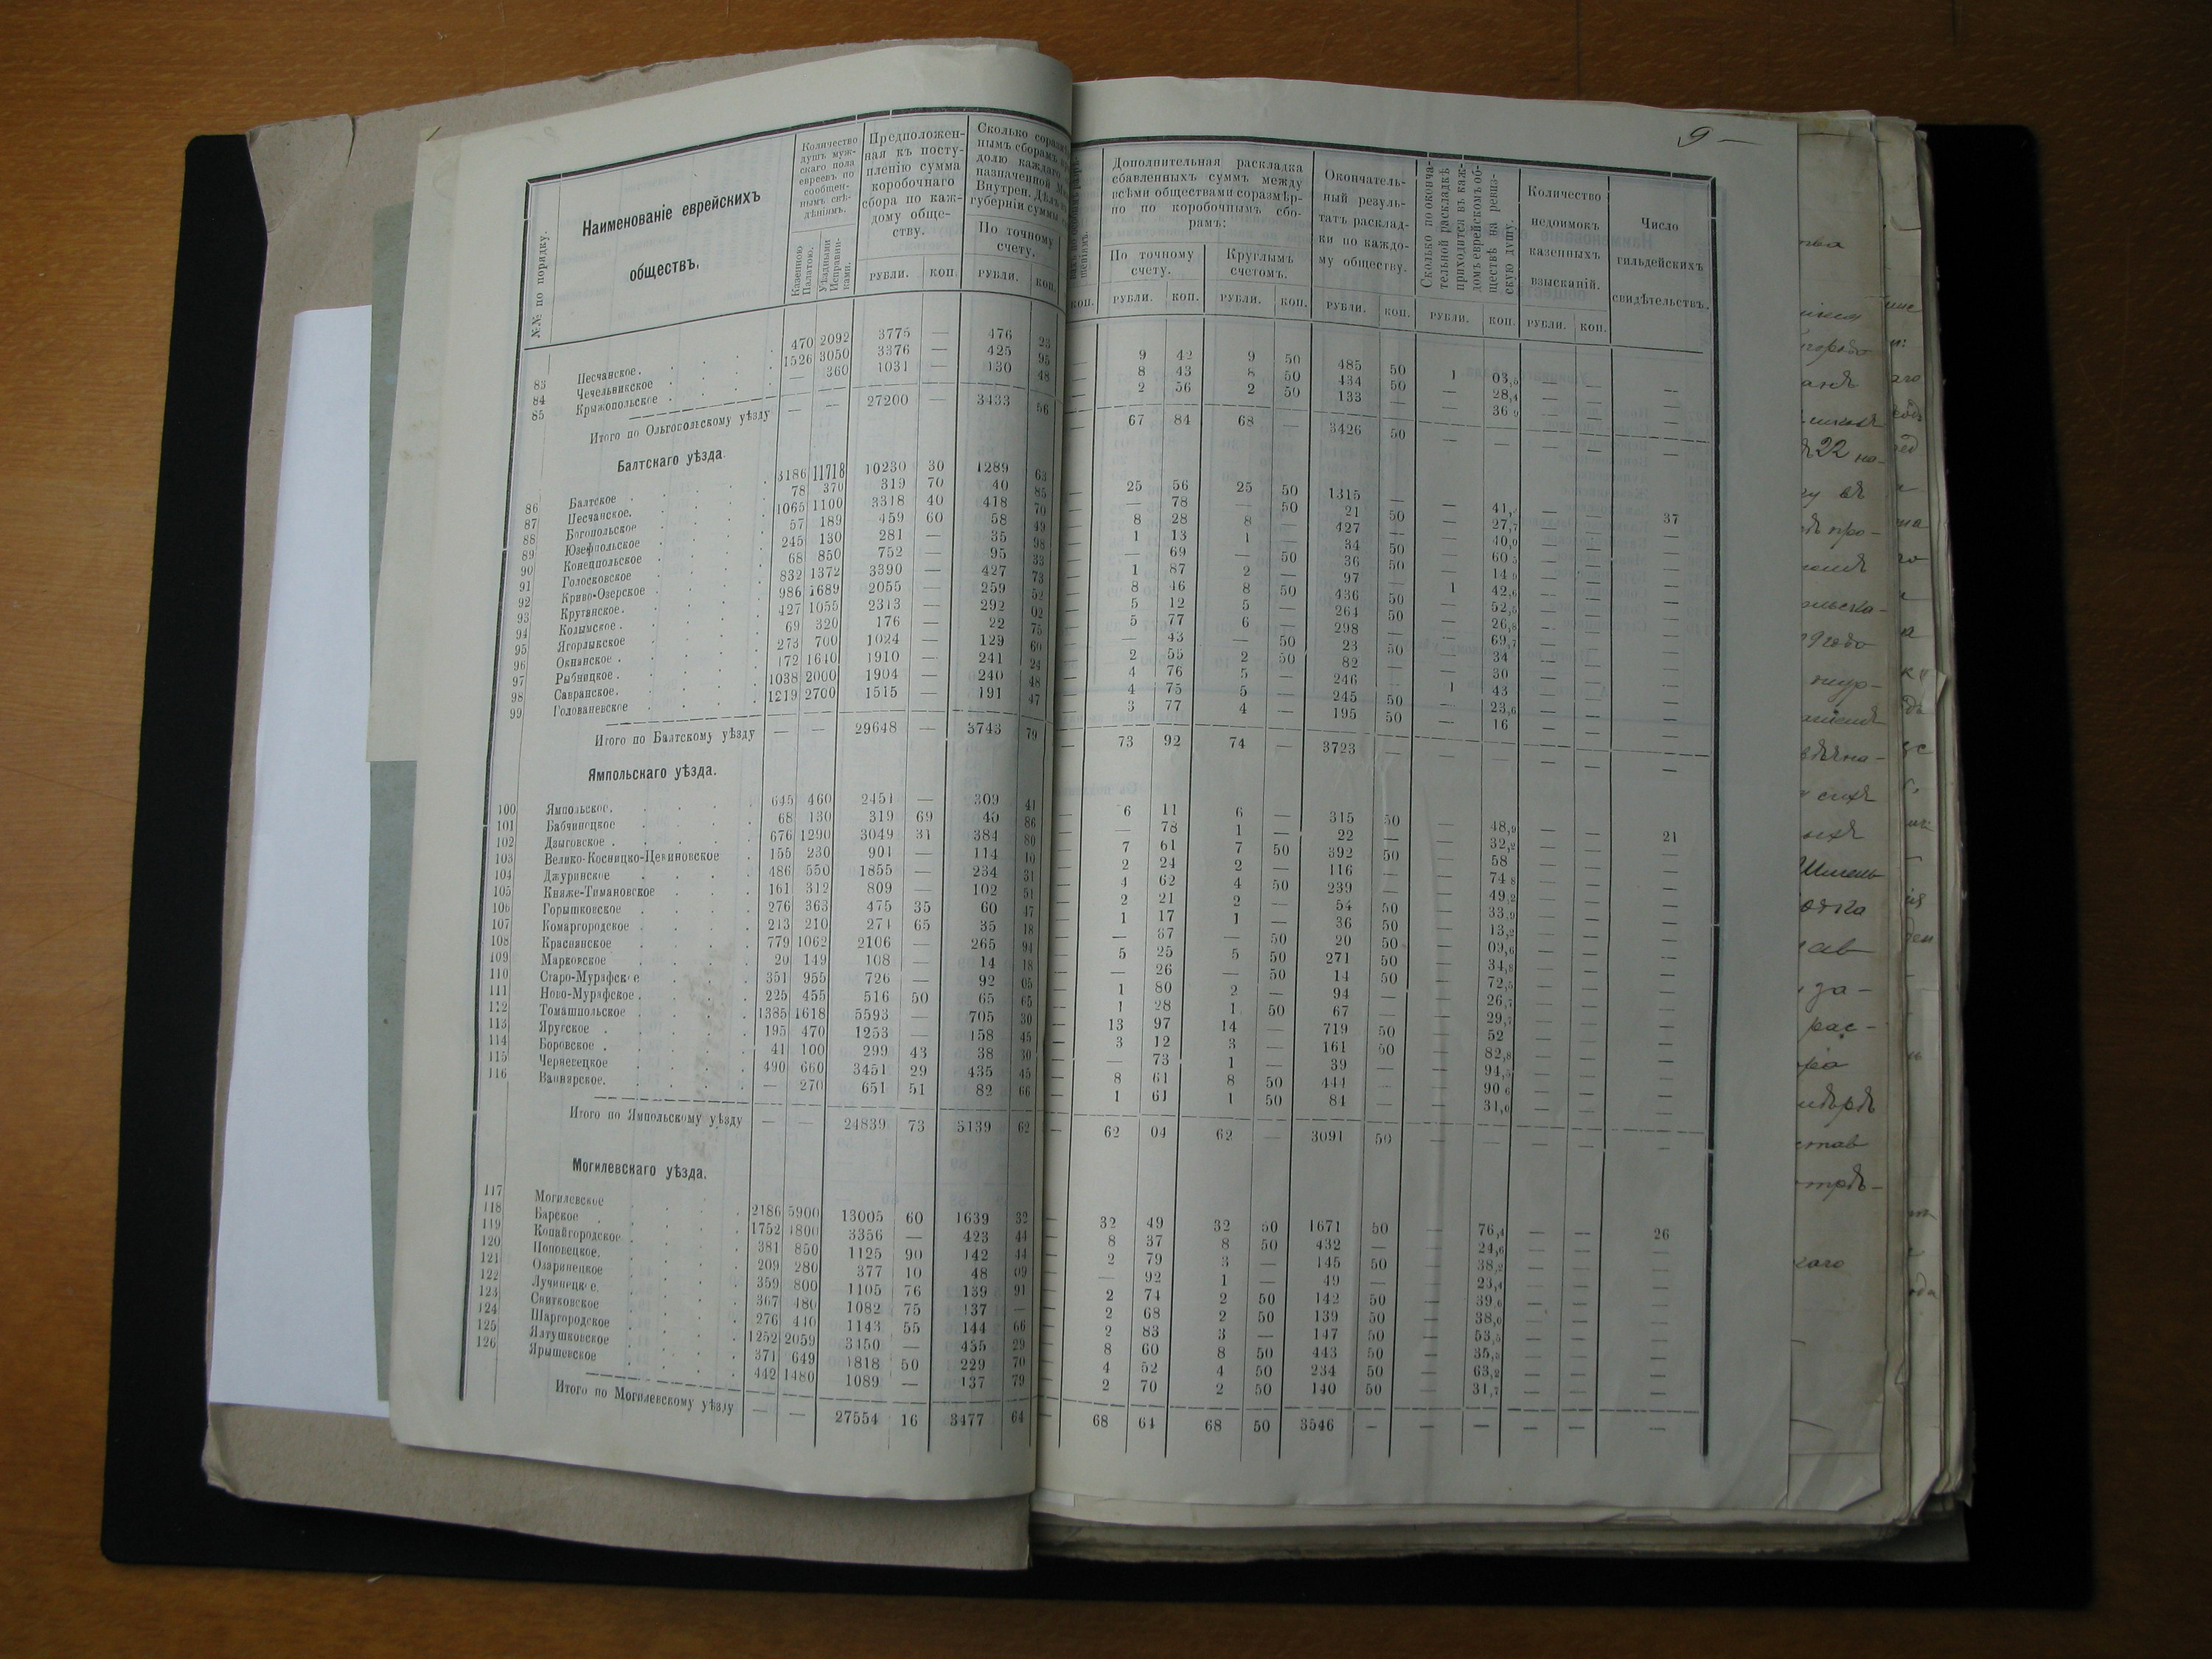 9 —
№№ по порядку.
Наименованіе еврейскихъ
обществъ.
Количество
душъ муж-
скаго пола
евреевъ по
сообщен-
нымъ свѣ-
дѣніямъ.
Казенною
Палатою.
Уѣздными
Исправни-
ками.
Предположен-
ная къ посту-
пленію сумма
коробочнаго
сбора по каж-
дому обще-
ству.
РУБЛИ. КОП.
По точному
счету.
РУБЛИ. КОП.
КОП.
Дополнительная раскладка
сбавленныхъ суммъ между
всѣми обществами соразмѣр-
но по коробочнымъ сбо-
рамъ:
По точному
счету.
Круглымъ
счетомъ.
РУБЛИ. КОП. РУБЛИ. КОП.
Окончатель-
ный резуль-
татъ расклад-
ки по каждо-
му обществу.
РУБЛИ. КОП.
Сколько по оконча-
тельной раскладкѣ
приходится въ каж-
домъ еврейскомъ об-
ществѣ на ревиз-
скую душу.
РУБЛИ. КОП.
Количество
недоимокъ
казенныхъ
взысканій.
РУБЛИ. КОП.
Число
гильдейскихъ
свидѣтельствъ.
83 Песчанское. 470 2092 3775 — 476 23 — 9 42 9 50 485 50 1 03, — — —
84 Чечельникское 1526 3050 3376 — 425 95 — 8 43 8 50 434 50 — 28,4 — — —
85 Крыжопольское — 360 1031 — 130 48 — 2 56 2 50 133 — — 36 — — —
Итого по Ольгопольскому уѣзду — — 27200 — 3433 56 — 67 84 68 — 3426 50 — — — — —
Балтскаго уѣзда.
86 Балтское 3186 11718 10230 30 1289 63 — 25 56 25 50 1315 — — 41, — — 37
87 Песчанское. 78 370 319 70 40 85 — — 78 — 50 21 50 — 27,7 — — —
88 Богопольское 1065 1100 3318 40 418 70 — 8 28 8 — 427 — — 40,0 — — —
89 Юзефпольское 57 189 459 60 58 49 — 1 13 1 — 34 50 — 60 — — —
90 Конецпольское 245 130 281 — 35 98 — — 69 — 50 36 50 — 14 — — —
91 Голосковское 68 850 752 — 95 33 — 1 87 2 — 97 — 1 42,6 — — —
92 Криво-Озерское 832 1372 3390 — 427 73 — 8 46 8 50 436 50 — 52,5 — — —
93 Крутянское. 986 1689 2055 — 259 52 — 5 12 5 — 264 50 — 26,8 — — —
94 Кодымское. 427 1055 2313 — 292 02 — 5 77 6 — 298 — — 69,7 — — —
95 Ягорлыкское 69 320 176 — 22 75 — — 43 — 50 23 50 — 34 — — —
96 Окнанское. 273 700 1024 — 129 60 — 2 55 2 50 82 — — 30 — — —
97 Рыбницкое. 172 1640 1910 — 241 24 — 4 76 5 — 246 — 1 43 — — —
98 Савранское. 1038 2000 1904 — 240 48 — 4 75 5 — 245 50 — 23,6 — — —
99 Голованевское 1219 2700 1515 — 191 47 — 3 77 4 — 195 50 — 16 — — —
Итого по Балтскому уѣзду — — 29648 — 3743 79 — 73 92 74 — 3723 — — — — — —
Ямпольскаго уѣзда.
100 Ямпольское. 645 460 2451 — 309 41 — 6 11 6 — 315 50 — 48,9 — — 21
101 Бабчинецкое 68 130 319 69 40 86 — — 78 1 — 22 — — 32,2 — — —
102 Дзыговское. 676 1290 3049 31 384 80 — 7 61 7 50 392 50 — 58 — — —
103 Велико-Косницко-Цекиновское 155 230 901 — 114 10 — 2 24 2 — 116 — — 74 8 — — —
104 Джуринское 486 550 1855 — 234 31 — 4 62 4 50 239 — — 49,2 — — —
105 Княже-Тимановское 161 312 809 — 102 51 — 2 21 2 — 54 50 — 33,9 — — —
106 Горышковское 276 363 475 35 60 47 — 1 17 1 — 36 50 — 13,2 — — —
107 Комаргородское 213 210 271 65 35 18 — — 67 — 50 20 50 — 09,6 — — —
108 Краснянское 779 1062 2106 — 265 94 — 5 25 5 50 271 50 — 34,8 — — —
109 Марковское 20 149 108 — 14 18 — — 26 — 50 14 50 — 72,5 — — —
110 Старо-Мурафское 351 955 726 — 92 05 — 1 80 2 — 94 — — 26,7 — — —
111 Ново-Мурафское. 225 455 516 50 65 65 — 1 28 1 50 67 — — 29,7 — — —
112 Томашпольское 1385 1618 5593 — 705 30 — 13 97 14 — 719 50 — 52 — — —
113 Яругское. 195 470 1253 — 158 45 — 3 12 3 — 161 50 — 82,8 — — —
114 Боровское. 41 100 299 43 38 30 — — 73 1 — 39 — — 94, — — —
115 Черневецкое 490 660 3451 29 435 45 — 8 61 8 50 444 — — 90 6 — — —
116 Вапнярское. — 270 651 51 82 66 — 1 61 1 50 84 — — 31,0 — — —
Итого по Ямпольскому уѣзду — — 24839 73 3139 62 — 62 04 62 — 3091 50 — — — — —
Могилевскаго уѣзда.
117 Могилевское 2186 5900 13005 60 1639 32 — 32 49 32 50 1671 50 — 76,4 — — 26
118 Барское 1752 4800 3356 — 423 44 — 8 37 8 50 432 — — 24,6 — — —
119 Копайгородское. 381 850 1125 90 142 44 — 2 79 3 — 145 50 — 38,2 — — —
120 Поповецкое. 209 280 377 10 48 09 — — 92 1 — 49 — — 23,4 — — —
121 Озаринецкое 359 800 1105 76 139 91 — 2 74 2 50 142 50 — 39,6 — — —
122 Лучинецкое. 367 480 1082 75 137 — — 2 68 2 50 139 50 — 38,0 — — —
123 Снитковское 276 440 1143 55 144 66 — 2 83 3 — 147 50 — 53,5 — — —
124 Шаргородское 1252 2059 3450 — 435 29 — 8 60 8 50 443 50 — 35,5 — — —
125 Ялтушковское 371 649 1818 50 229 70 — 4 52 4 50 234 50 — 63,2 — — —
126 Ярышевское 442 1480 1089 — 137 79 — 2 70 2 50 140 50 — 31,7 — — —
Итого по Могилевскому уѣзду — — 27554 16 3477 64 — 68 64 68 50 3546 — — — — — —